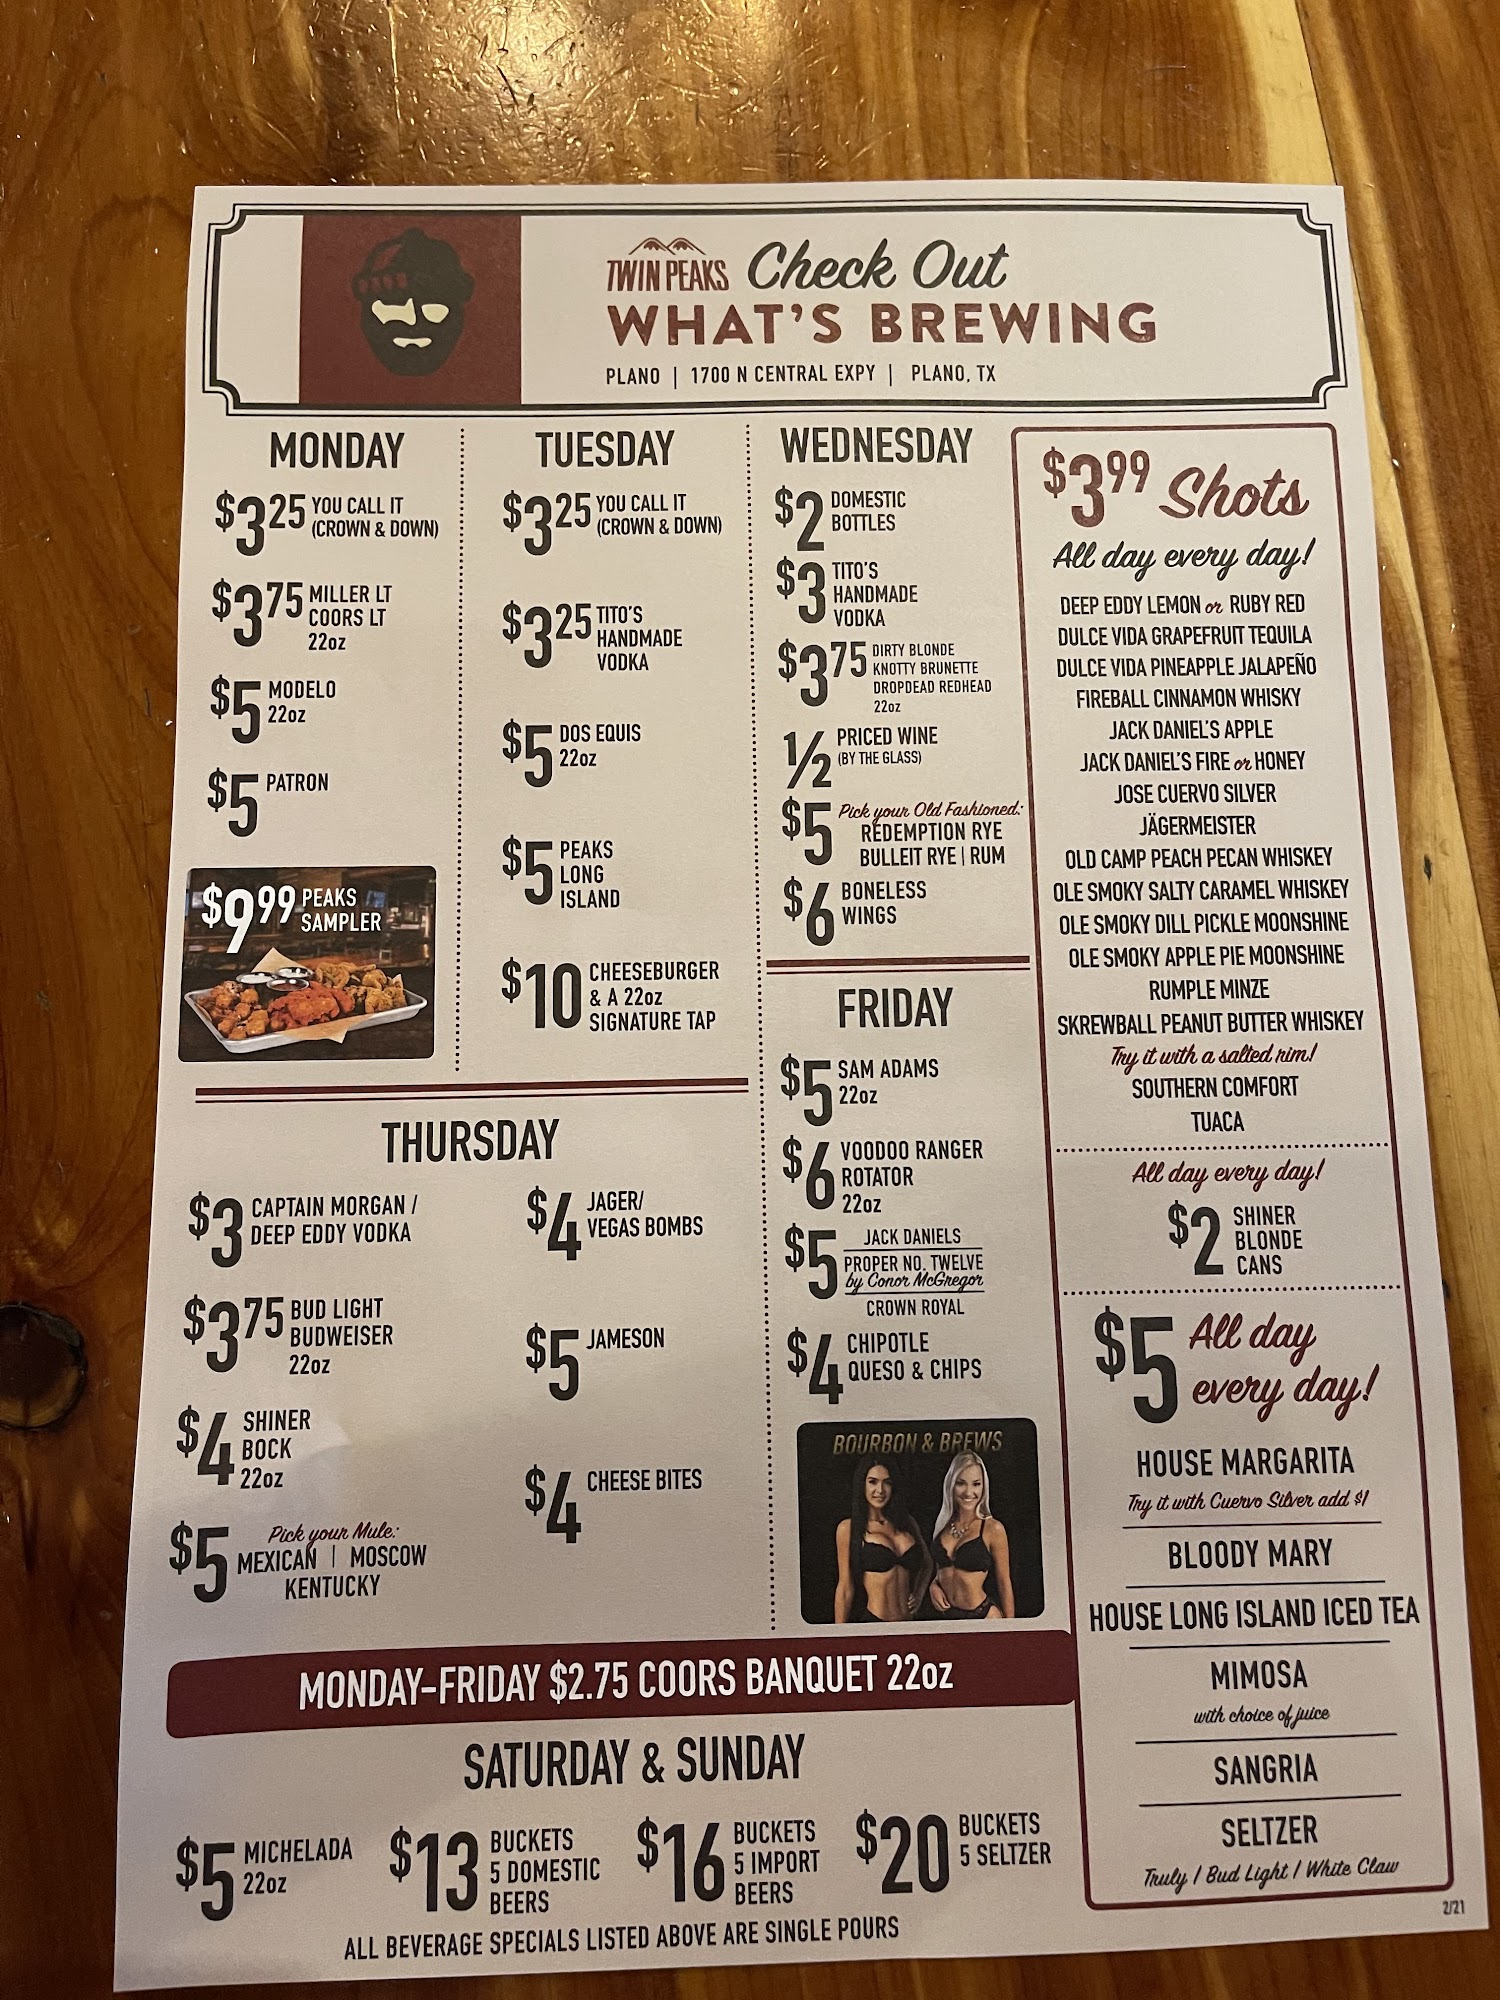 TWIN PEAKS Check Out
WHAT'S BREWING
PLANO | 1700 N CENTRAL EXPY | PLANO, TX
MONDAY
$3.25 YOU CALL IT
(CROWN & DOWN)
$3.75 MILLER LT
COORS LT
22oz
$5 MODELO
22oz
$5 PATRON
$9.99 PEAKS
SAMPLER
TUESDAY
$3.25 YOU CALL IT
(CROWN & DOWN)
$3.25 TITO'S
HANDMADE
VODKA
$5 DOS EQUIS
22oz
$5 PEAKS
LONG
ISLAND
$10 CHEESEBURGER
& A 22oz
SIGNATURE TAP
WEDNESDAY
$2 DOMESTIC
BOTTLES
$3 TITO'S
HANDMADE
VODKA
$3.75 DIRTY BLONDE
KNOTTY BRUNETTE
DROPDEAD REDHEAD
22oz
1/2 PRICED WINE
(BY THE GLASS)
$5 Pick your Old Fashioned:
REDEMPTION RYE
BULLEIT RYE | RUM
$6 BONELESS
WINGS
THURSDAY
$3 CAPTAIN MORGAN /
DEEP EDDY VODKA
$3.75 BUD LIGHT
BUDWEISER
22oz
$4 SHINER
BOCK
22oz
$5 Pick your Mule:
MEXICAN | MOSCOW
KENTUCKY
$4 JAGER/
VEGAS BOMBS
$5 JAMESON
$4 CHEESE BITES
FRIDAY
$5 SAM ADAMS
22oz
$6 VOODOO RANGER
ROTATOR
22oz
$5 JACK DANIELS
PROPER NO. TWELVE
by Conor McGregor
CROWN ROYAL
$4 CHIPOTLE
QUESO & CHIPS
BOURBON & BREWS
MONDAY-FRIDAY $2.75 COORS BANQUET 22oz
SATURDAY & SUNDAY
$5 MICHELADA
22oz
$13 BUCKETS
5 DOMESTIC
BEERS
$16 BUCKETS
5 IMPORT
BEERS
$20 BUCKETS
5 SELTZER
ALL BEVERAGE SPECIALS LISTED ABOVE ARE SINGLE POURS
$3.99 Shots
All day every day!
DEEP EDDY LEMON or RUBY RED
DULCE VIDA GRAPEFRUIT TEQUILA
DULCE VIDA PINEAPPLE JALAPEÑO
FIREBALL CINNAMON WHISKY
JACK DANIEL'S APPLE
JACK DANIEL'S FIRE or HONEY
JOSE CUERVO SILVER
JÄGERMEISTER
OLD CAMP PEACH PECAN WHISKEY
OLE SMOKY SALTY CARAMEL WHISKEY
OLE SMOKY DILL PICKLE MOONSHINE
OLE SMOKY APPLE PIE MOONSHINE
RUMPLE MINZE
SKREWBALL PEANUT BUTTER WHISKEY
Try it with a salted rim!
SOUTHERN COMFORT
TUACA
All day every day!
$2 SHINER
BLONDE
CANS
$5 All day
every day!
HOUSE MARGARITA
Try it with Cuervo Silver add $1
BLOODY MARY
HOUSE LONG ISLAND ICED TEA
MIMOSA
with choice of juice
SANGRIA
SELTZER
Truly / Bud Light / White Claw
2/21